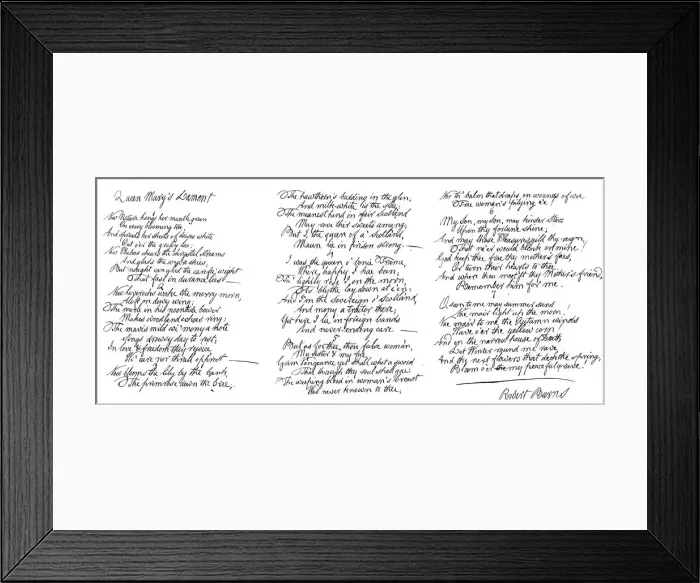 Queen Mary's Lament
Now Nature hangs her mantle green
On every blooming tree,
And spreads her sheets o' daisy white
Out o'er the grassy lea:
Now Phœbus cheers the crystal streams
And glads the azure skies,
But nought can glad the weary wight
That fast in durance lies
2
Now laverocks wake the merry morn,
Aloft on dewy wing;
The merle in his noontide bower
Makes woodland echoes ring:
The mavis mild wi' mony a note
Sings drowsy day to rest;
In love & freedom they rejoice
Wi' care nor thrall opprest
3
Now blooms the lily by the bank
The primrose down the brae,
The hawthorn's budding in the glen,
And milk-white is the slae;
The meanest hind in fair Scotland
May rove their sweets amang;
But I the queen of a' Scotland,
Maun lie in prison strong
4
I was the queen o' bonie France,
Where happy I hae been;
Fu' lightly rose I on the morn,
As blythe lay down at e'en:
And I'm the sovereign o' Scotland
And mony a traitor there;
Yet here I lie in foreign bands
And never-ending care
5
But as for thee, thou false woman,
My sister & my fae,
Grim vengeance yet shall whet a sword
That through thy soul shall gae:
The weeping blood in woman's breast
Was never known to thee;
Nor th' balm that draps on wounds of woe
Frae woman's pitying e'e!
6
My son, my son, may kinder stars
Upon thy fortune shine;
And may those pleasures gild thy reign,
That ne'er would blink on mine!
God keep thee frae thy mother's faes,
Or turn their hearts to thee
And where thou meet'st thy Mother's friend,
Remember him for me.
7
O, soon to me may summer suns
Nae mair light up the morn!
Nae mair to me the Autumn winds
Wave o'er the yellow corn!
And in the narrow house of death
Let Winter round me rave
And the next flowers that deck the spring,
Bloom o'er my peaceful grave!
Robert Burns